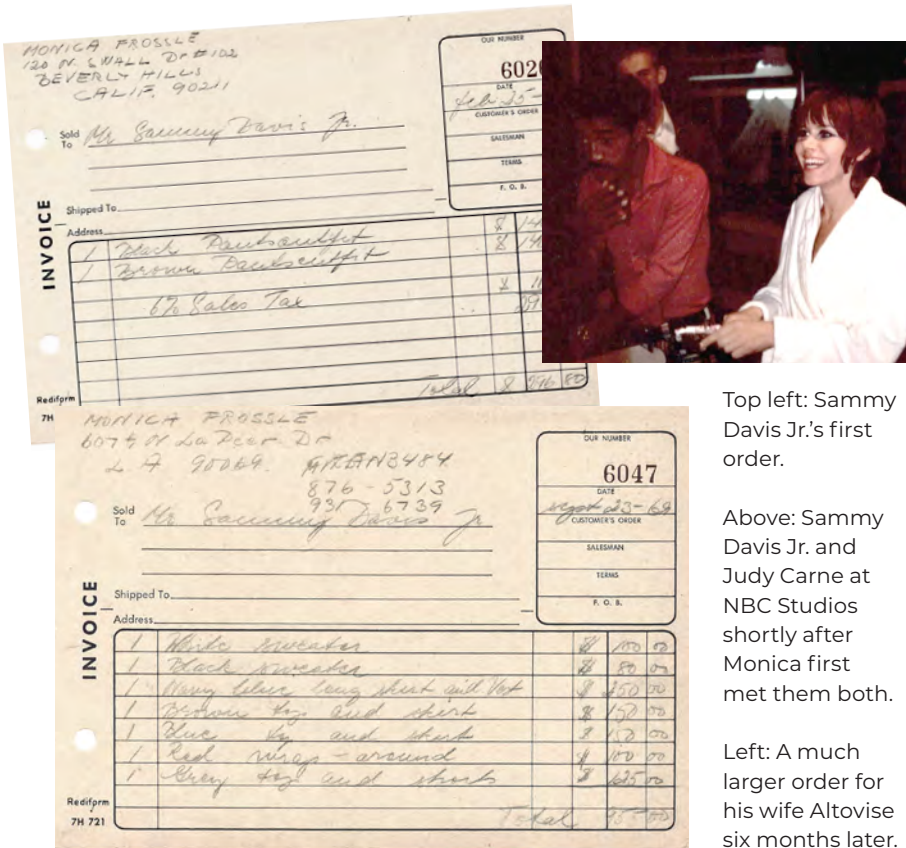 MONICA FROSSLE
120 N. SWALL Dr #102
BEVERLY HILLS
CALIF. 90211
OUR NUMBER
602
DATE
feb 25-
CUSTOMER'S ORDER
SALESMAN
TERMS
F. O. B.
Sold To Mr Sammy Davis Jr.
Shipped To
Address
INVOICE
1 Black Pantsoutfit $ 14
1 Brown Pantsoutfit $ 14
$
6% Sales Tax
Total $ 80
Rediform
7H
MONICA FROSSLE
N La Peer Dr
L A 90069
876-5313
931-6739
OUR NUMBER
6047
DATE
sept 23-69
CUSTOMER'S ORDER
SALESMAN
TERMS
F. O. B.
Sold To Mr Sammy Davis Jr
Shipped To
Address
INVOICE
1 White sweater $ 100 00
1 Black sweater $ 80 00
1 Navy blue long skirt and Vest $ 250 00
1 Brown top and skirt $ 150 00
1 Blue top and skirt $ 150 00
1 Red wrap-around $ 100 00
1 Grey top and shorts $ 00
Total 955 00
Rediform
7H 721
Top left: Sammy
Davis Jr.'s first
order.
Above: Sammy
Davis Jr. and
Judy Carne at
NBC Studios
shortly after
Monica first
met them both.
Left: A much
larger order for
his wife Altovise
six months later.